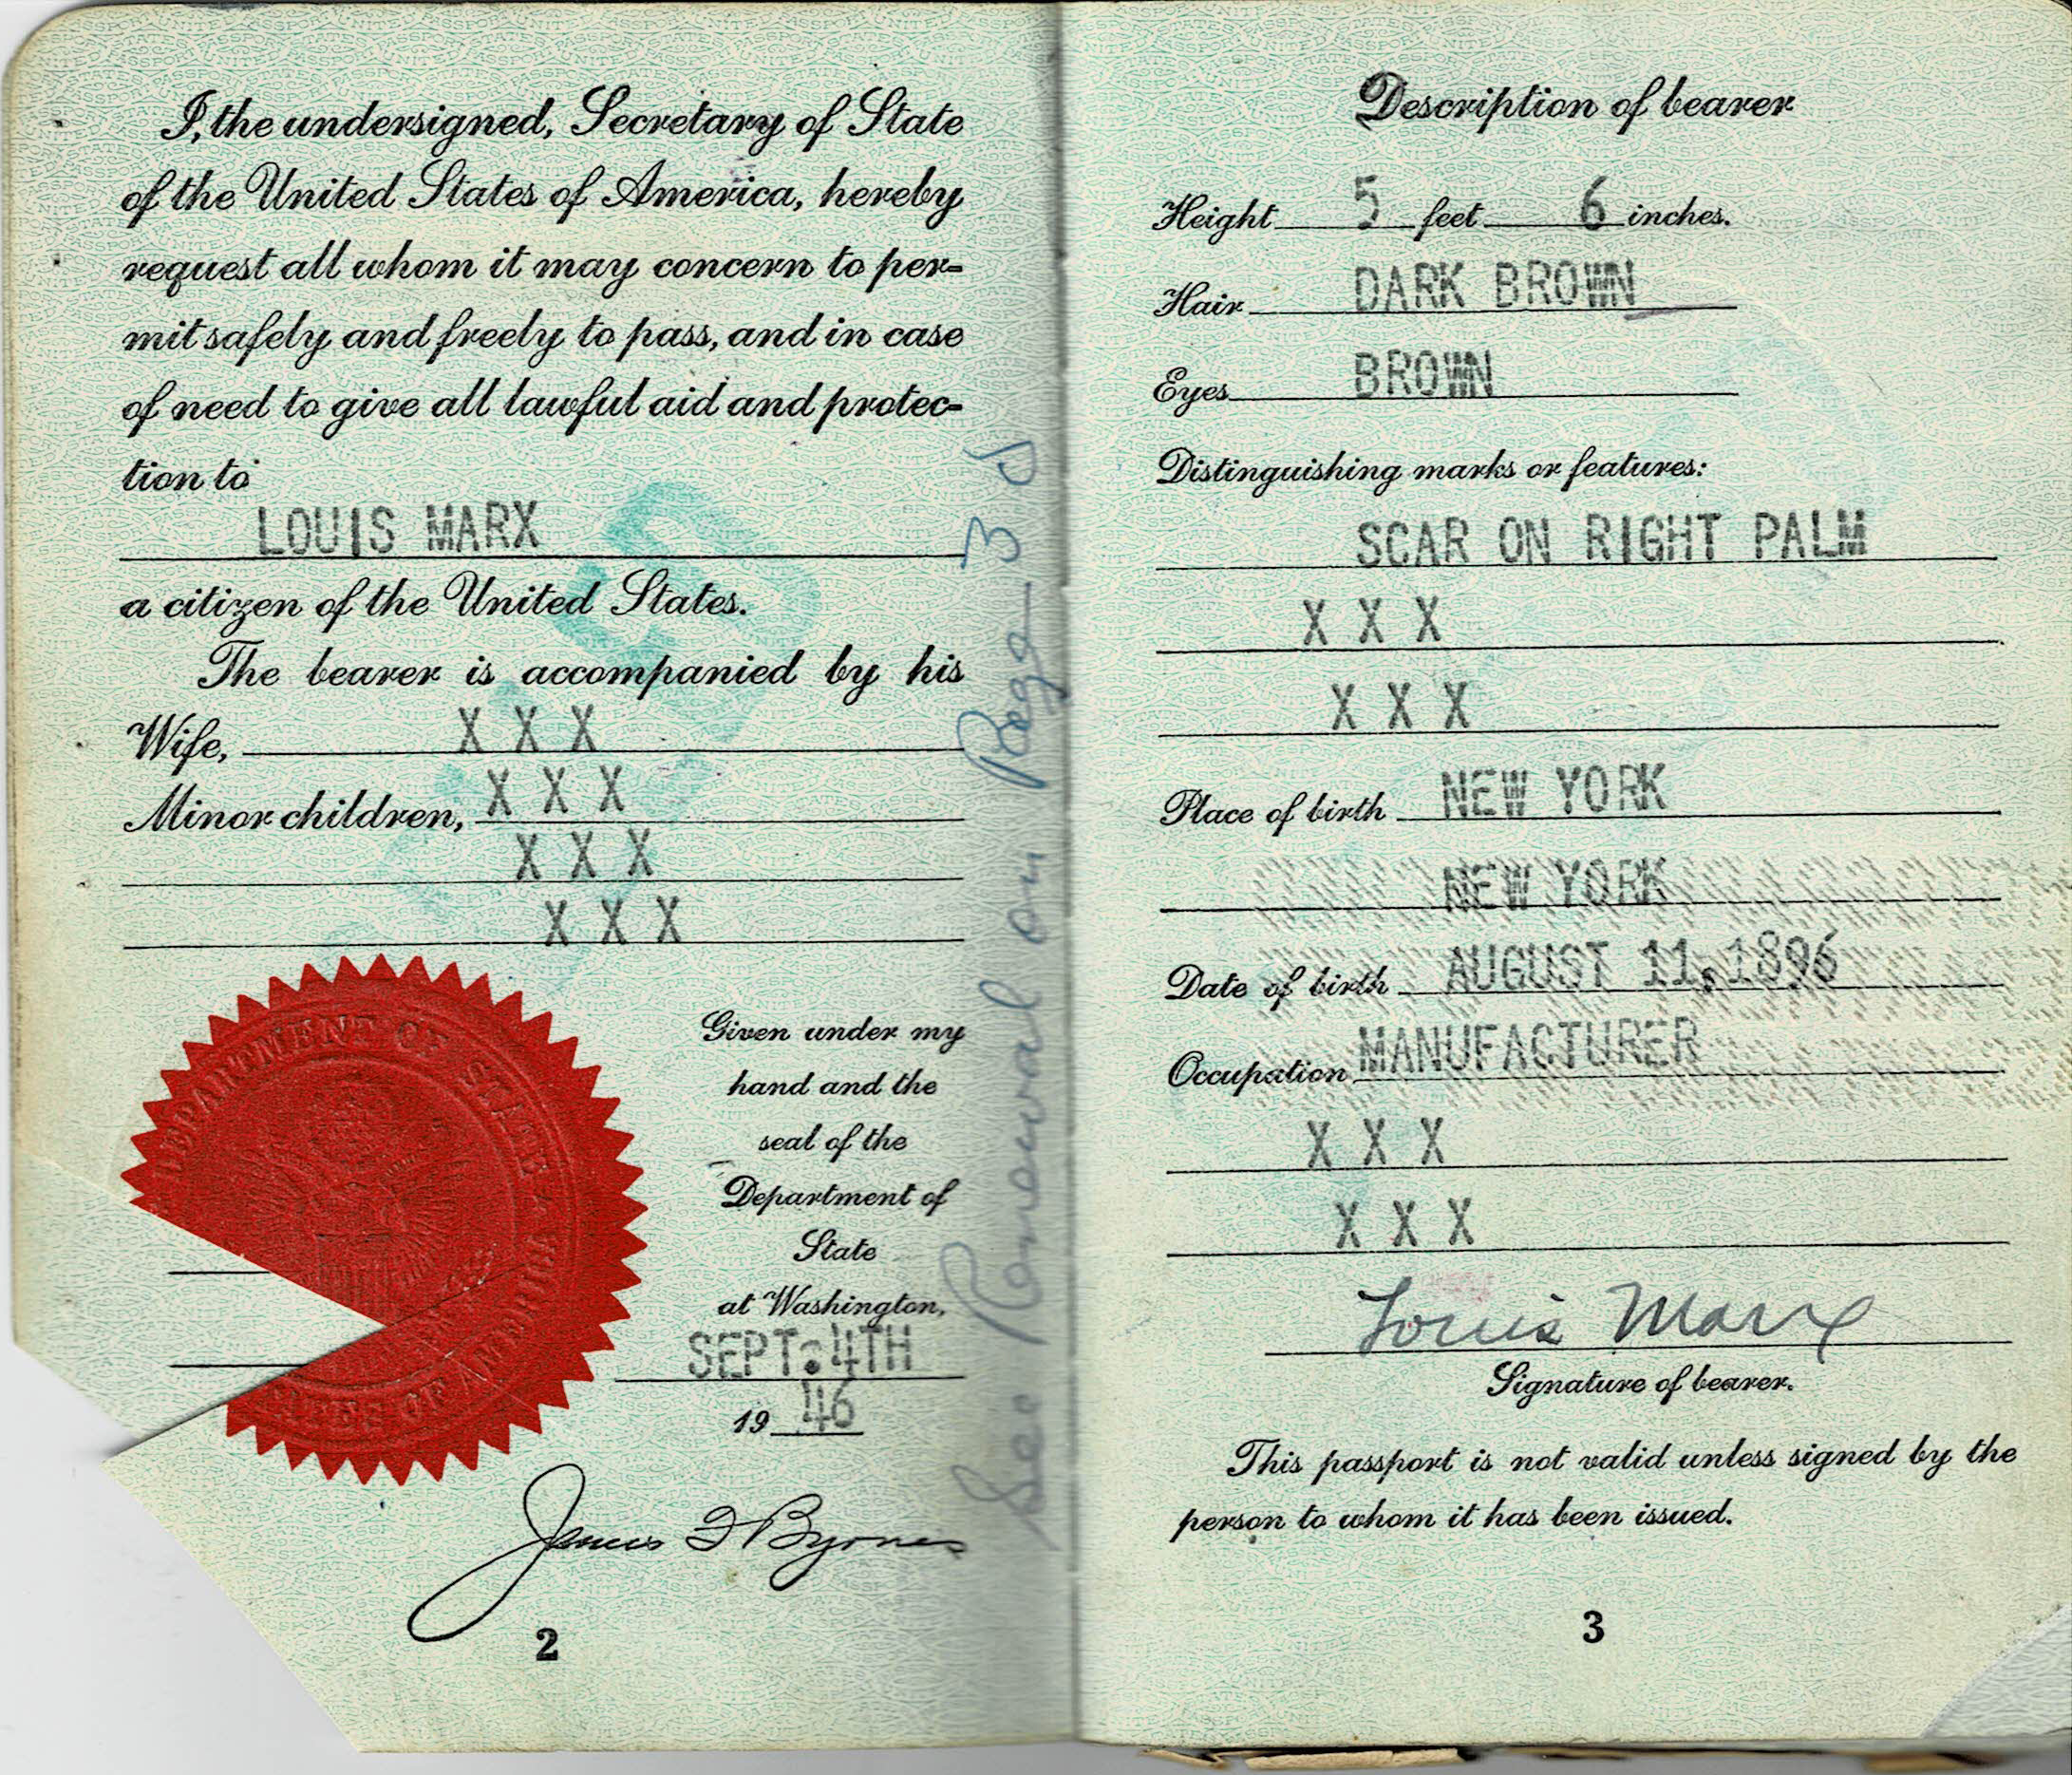 I, the undersigned, Secretary of State
of the United States of America, hereby
request all whom it may concern to per-
mit safely and freely to pass, and in case
of need to give all lawful aid and protec-
tion to
LOUIS MARX
a citizen of the United States.
The bearer is accompanied by his
Wife, X X X
Minor children, X X X
X X X
X X X
DEPARTMENT OF STATE
STATES OF AMERICA
Given under my
hand and the
seal of the
Department of
State
at Washington,
SEPT. 4TH
19 46
James F Byrnes
2
See Renewal on Page 3
Description of bearer
Height 5 feet 6 inches.
Hair DARK BROWN
Eyes BROWN
Distinguishing marks or features:
SCAR ON RIGHT PALM
X X X
X X X
Place of birth NEW YORK
NEW YORK
Date of birth AUGUST 11, 1896
Occupation MANUFACTURER
X X X
X X X
Louis Marx
Signature of bearer.
This passport is not valid unless signed by the
person to whom it has been issued.
3